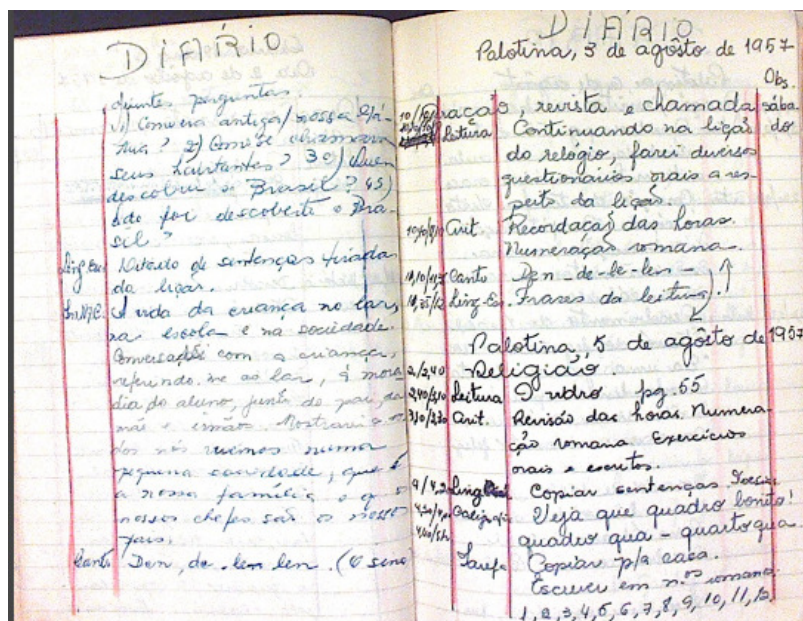 DIÁRIO
guintes perguntas
1) Como era antiga/ nossa Pá-
tria? 2) Como se chamavam
seus habitantes? 3º) Quem
descobriu o Brasil? 4º)
foi descoberto o Bra-
sil?
Ling. Esc. Ditado de sentenças tiradas
da lição.
A vida da criança no lar,
na escola e na sociedade.
com a criança,
referindo-me ao lar, á mora
dia do aluno, junto do pai, da
mãe e irmãos. Mostrarei
dos nós vivemos numa
pequena sociedade, que é
a nossa família e q
nossos chefes são os nossos
pais.
Canto Den, de-lem len. (O sino
DIÁRIO
Palotina, 3 de agôsto de 1957
Obs.
Oração revista e chamada sába
Leitura Continuando na lição do
do relógio, farei diversos
questionários orais a res-
peito da lição.
Arit. Recordação das horas.
Numeração romana.
Canto Den-de-le-len-
Ling-Es. Frases da leitura.
Palotina, 5 de agôsto de 1957
2/2,40 Religião
2,40/3,10 Leitura O vidro pg. 55
3,10/3,30 Arit. Revisão das horas. Numera-
ção romana. Exercícios
orais e escritos.
Ling. Copiar sentenças. Poesia
Caligrafia Veja que quadro bonito!
quadro qua - quarto qua
Tarefa Copiar p/a casa.
Escrever em n.os romano
1, 2, 3, 4, 5, 6, 7, 8, 9, 10, 11, 12.